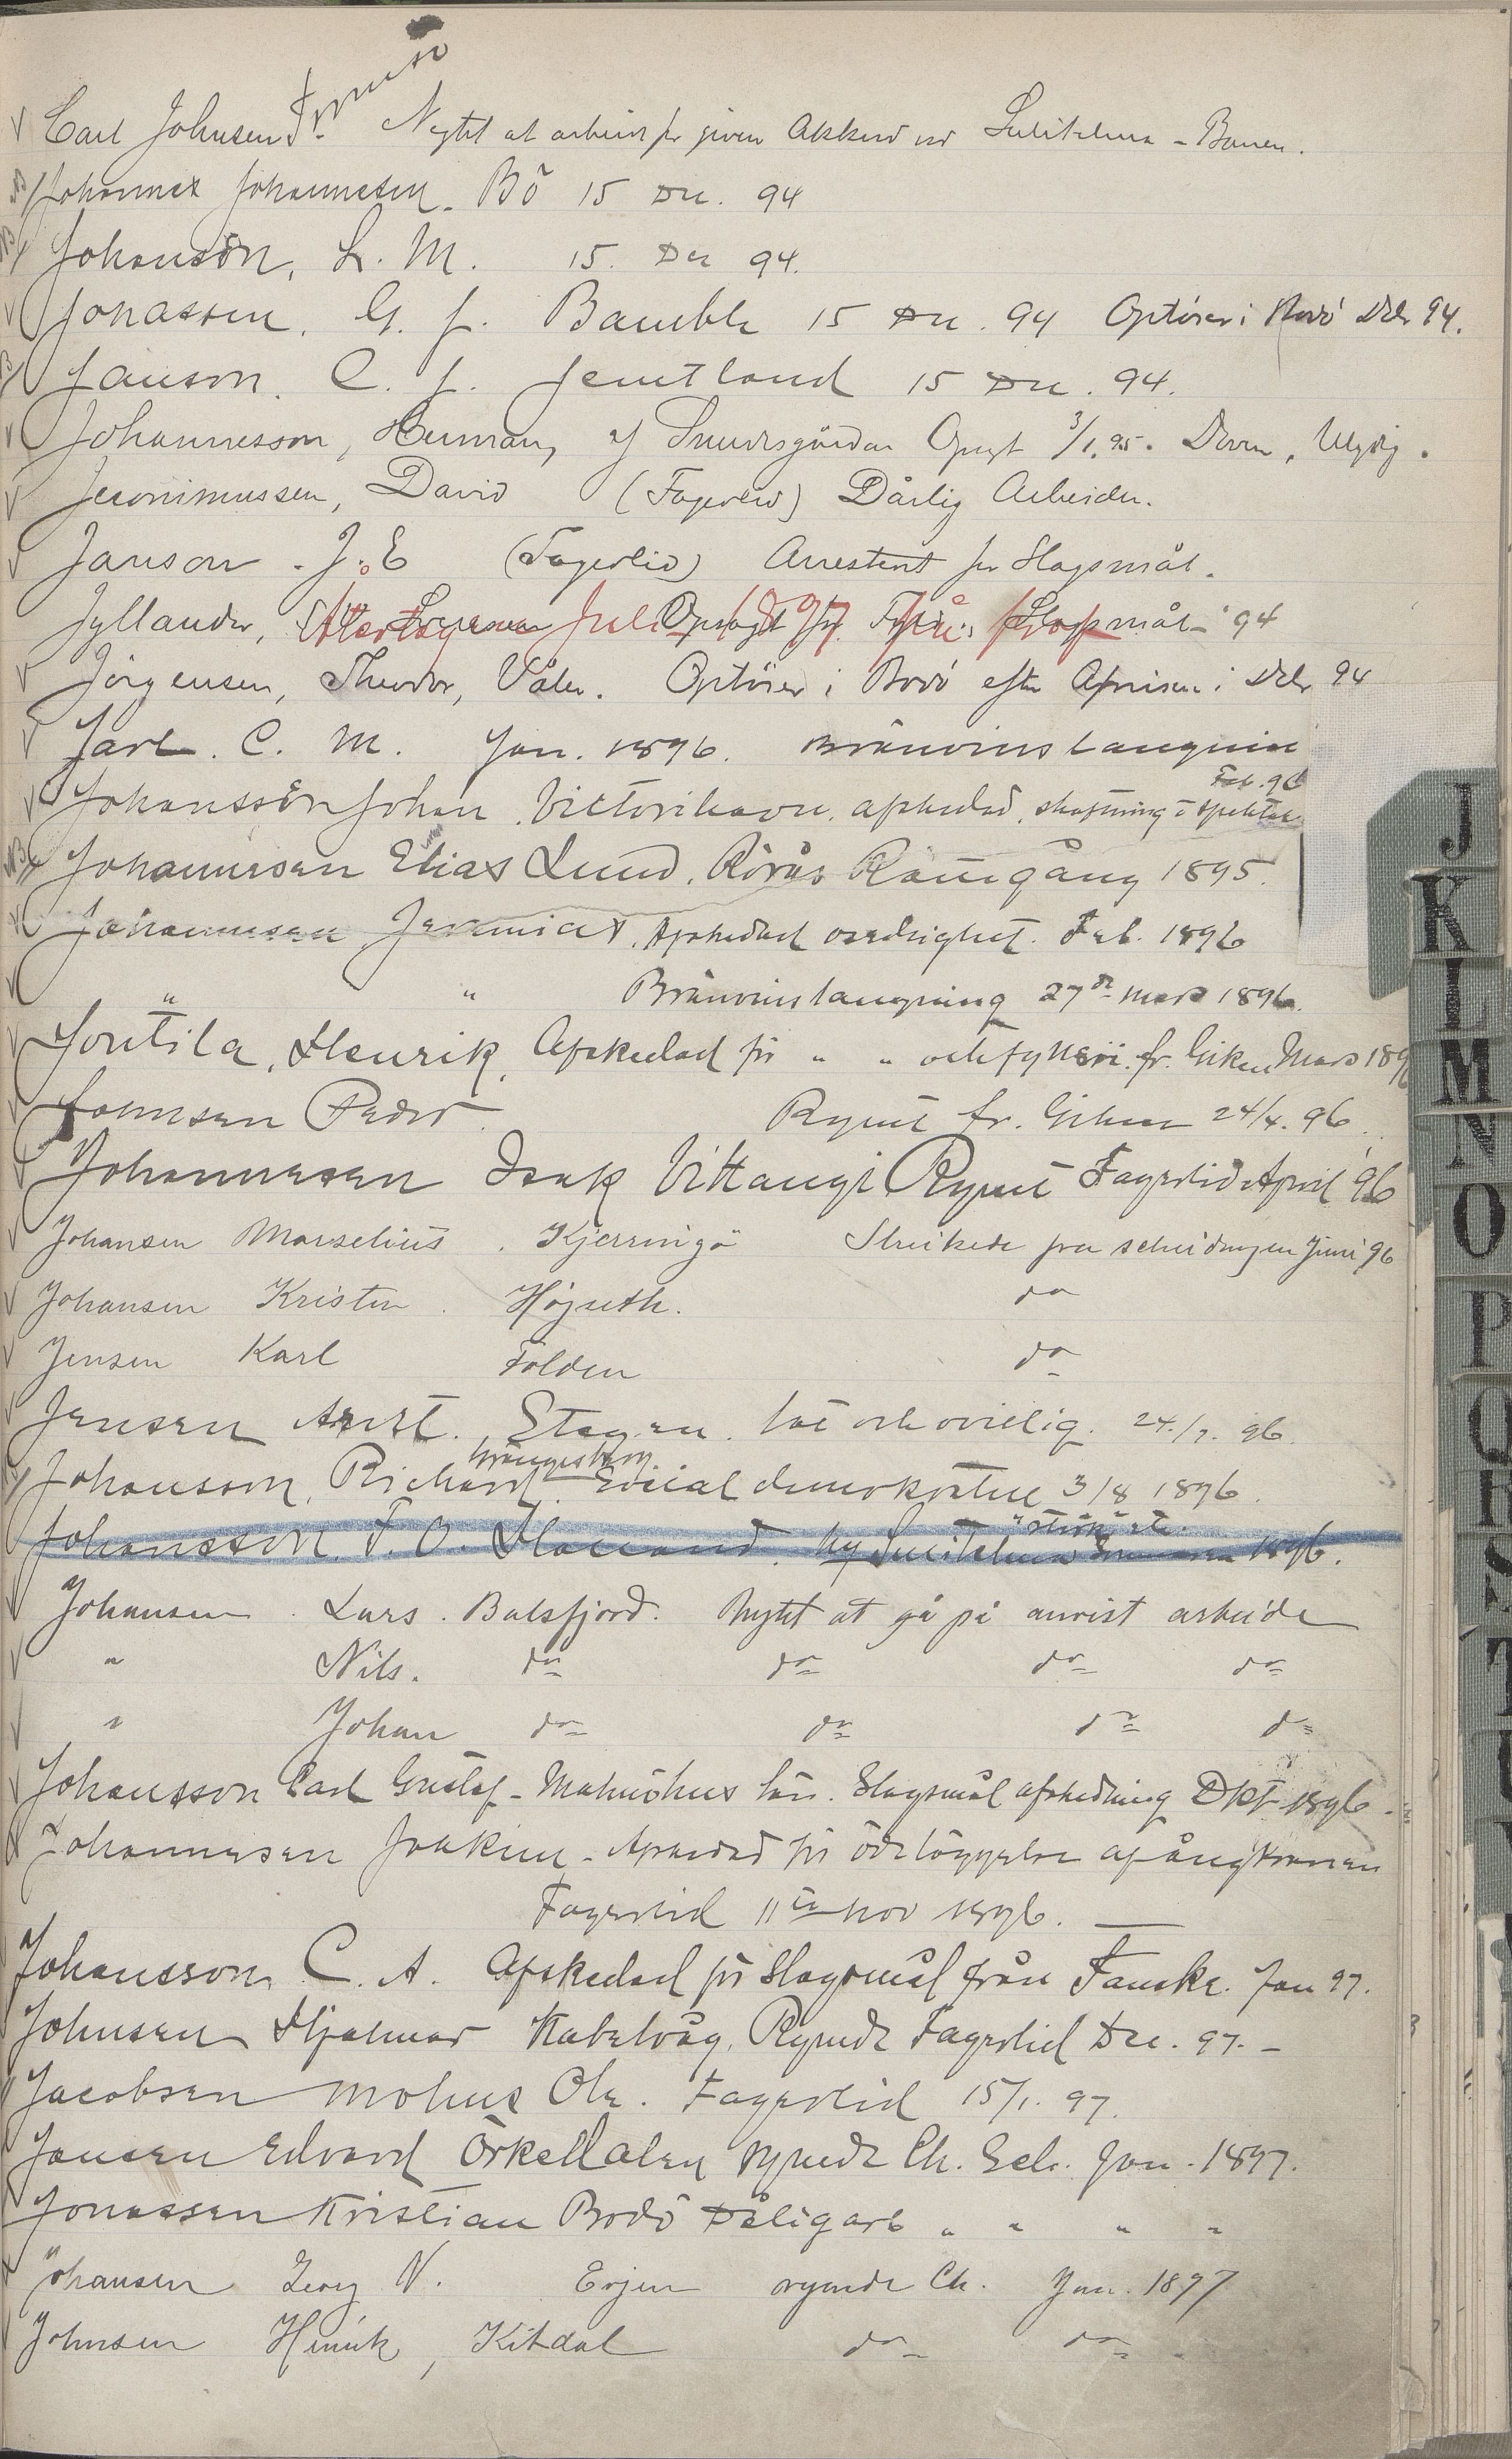 Carl Johnsen Tromsö Negtet at arbeide for given Akkord ved Sulitelma-Banen.
Johannes Johannesen. Bö 15 Dec. 94
Johanson, L. M. 15. Dec 94.
Jonassen, G. J. Bamble 15 Dec. 94 Optöier i Bodö Dcbr 94.
Janson. C. J. Jemtland 15 Dec. 94.
Johannesson, Herman, af Opsagt 3/1.95. Doven,
Jeronimussen, David (Fagerlid) Dårlig Arbeider.
Janson. J. E (Fagerlid) Arrestert for Slagsmål.
Jyllander, Opsagt for Slagsmål 94
Återtagen Juli 1897 på prof
Jörgensen, Theodor, Våler. Optöier i Bodö efter Afreisen i Dcbr 94
Jarl. C. M. Jan. 1896. Bränvinslangning
Johansson Johan. Victorihavn. afskedad, skoftning & spektak. Feb. 96
Johannesen Elias Lund. Rörås Römgång 1895.
Johannesen Jeremias. Afskedad osedlighet. Feb. 1896
" " Bränvinslangning 27de mars 1896.
Joutila, Henrik, Afskedad för " " och fylleri. fr. Giken Mars 189
Johnsen Peder. Rymt fr. Giken 24/4. 96.
Johannesen Isak Vittangi Rymt Fagerlid April 96
Johansen Marselius. Kjerringö Streikede fra scheidingen Juni 96
Johansen Kristen. Höjseth. do
Jensen Karl Folden do
Jensen Arnt. Stegen. lat och ovillig. 24./7. 96.
Johansson, Richard. Grängesberg Social demokraten 3/8 1896.
Johansson. F. O. Halland. Ny Sulitelma 1896.
Johansen. Lars. Balsfjord. Nytet at gå på anvist arbeide
" Nils. do do do do
" Johan do do do do
Johansson Carl Gustaf - Malmöhus län. Slagsmål afskedning Okt 1896.
Johannesen Joakim - Afskedad för ödeläggelse af ångkranen
Fagerlid 11te nov 1896.
Johansson C. A. Afskedad för Slagsmål från Fauske. Jan 97.
Johnsen Hjalmar Kabelvåg. Rymde Fagerlid Dec. 97. -
Jacobsen Mohus Ole. Fagerlid 15/1. 97.
Jansen Edvard Örkedalen rymde Ch. Sch. Jan. 1897.
Jonassen Kristian Bodö Dålig arb " " " "
Johansen Georg N. Evjen rymde Ch. Jan. 1897
Johnsen Henrik, Kitdal do do
J
K
L
M
N
O
P
Q
R
S
T
U